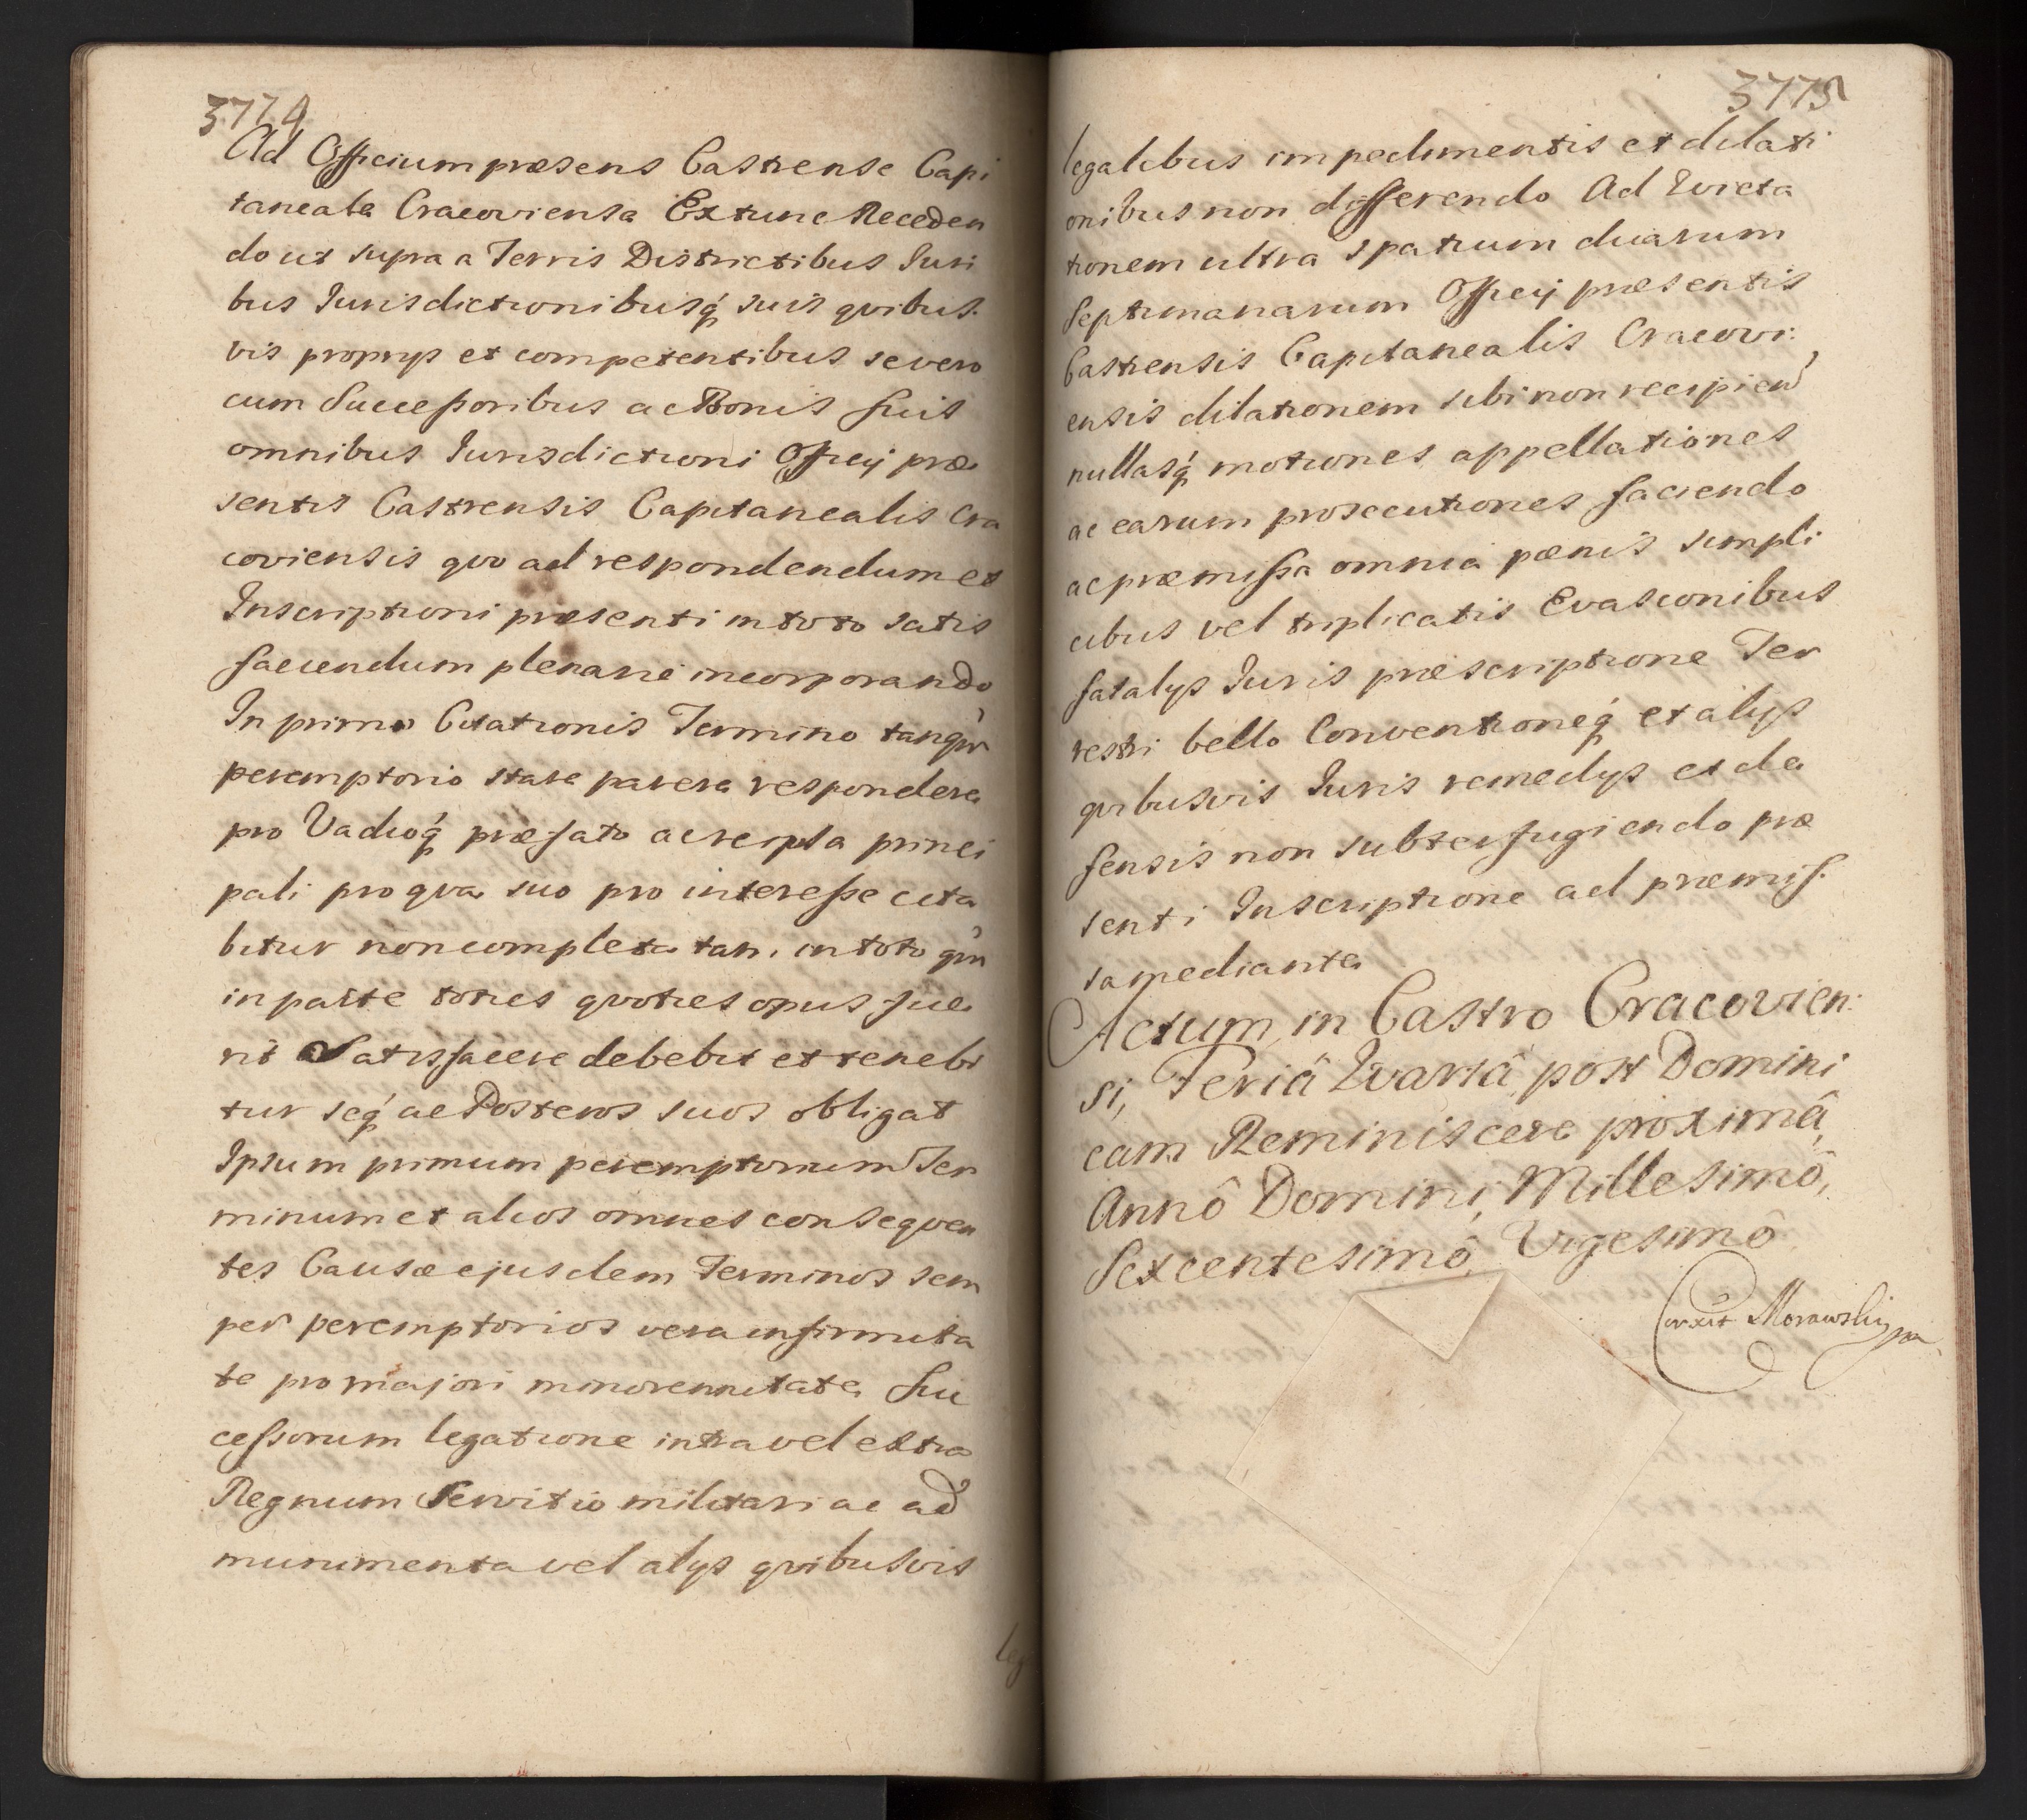 3774
Ad Officium præsens Castrense Capi
taneale Cracoviense Extunc Receden
do ut supra a Terris Districtibus Juri
bus Jurisdictionibusq́ suis qvibus
vis proprys et competentibus se vero
cum Succeſsoribus ac Bonis suis
omnibus Jurisdictioni Officij præ
sentis Castrensis Capitanealis Cra
coviensis qvo ad respondendum et
Inscriptioni præsenti in toto satis
faciendum plenarie incorporando
In primo Citationis Termino tanqvā
peremptorio stare parere respondere
pro Vadioq́ præfato ac re ipsa princi
pali pro qva suo pro intereſse cita
bitur non completa tam in toto qvā
in parte toties qvoties opus fue
rit Satisfacere debebit et tenebi
tur seq́ ac Posteros suos obligat
Ipsum primum peremptorium Ter
minum et alios omnes conseqven
tes Causæ ejusdem Terminos sem
per peremptorios vera infirmita
te pro majori minorennitate Suc
ceſsorum legatione intra vel extra
Regnum Servitio militari ac ad
munimenta vel alys qvibusvis
leg
3775
legalibus impedimentis et dilati
onibus non differendo Ad Evicta
tionem ultra spatium duarum
Septimanarum Officij præsentis
Castrensis Capitanealis Cracovi:
ensis dilationem sibi non recipien̄
nullasq́ motiones appellationes
ac earum prosecutiones faciendo
ac præmiſsa omnia pænis simpli
cibus vel triplicatis Evasionibus
fatalys Juris præscriptione Ter
restri bello Conventioneq́ et alys
qvibusvis Juris remedys et de
fensis non subterfugiendo præ
senti Inscriptione ad præmiſ.
sa mediante
Actum in Castro Cracovien:
si, Feriâ Qvartâ post Domini
cam Reminiscere proximâ,
Annô Domini, Millesimô,
Sexcentesimô, Vigesimô
Correxit Morawski mp